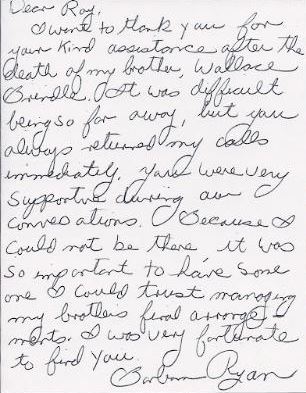 Dear Ray,
I want to thank you for
your kind assistance after the
death of my brother, Wallace
Brindle. It was difficult
being so far away, but you
always returned my calls
immediately. You were very
supportive during our
conversations. Because I
could not be there it was
so important to have some
one I could trust managing
my brothers feral arrange-
ments. I was very fortunate
to find you.
Barbara Ryan